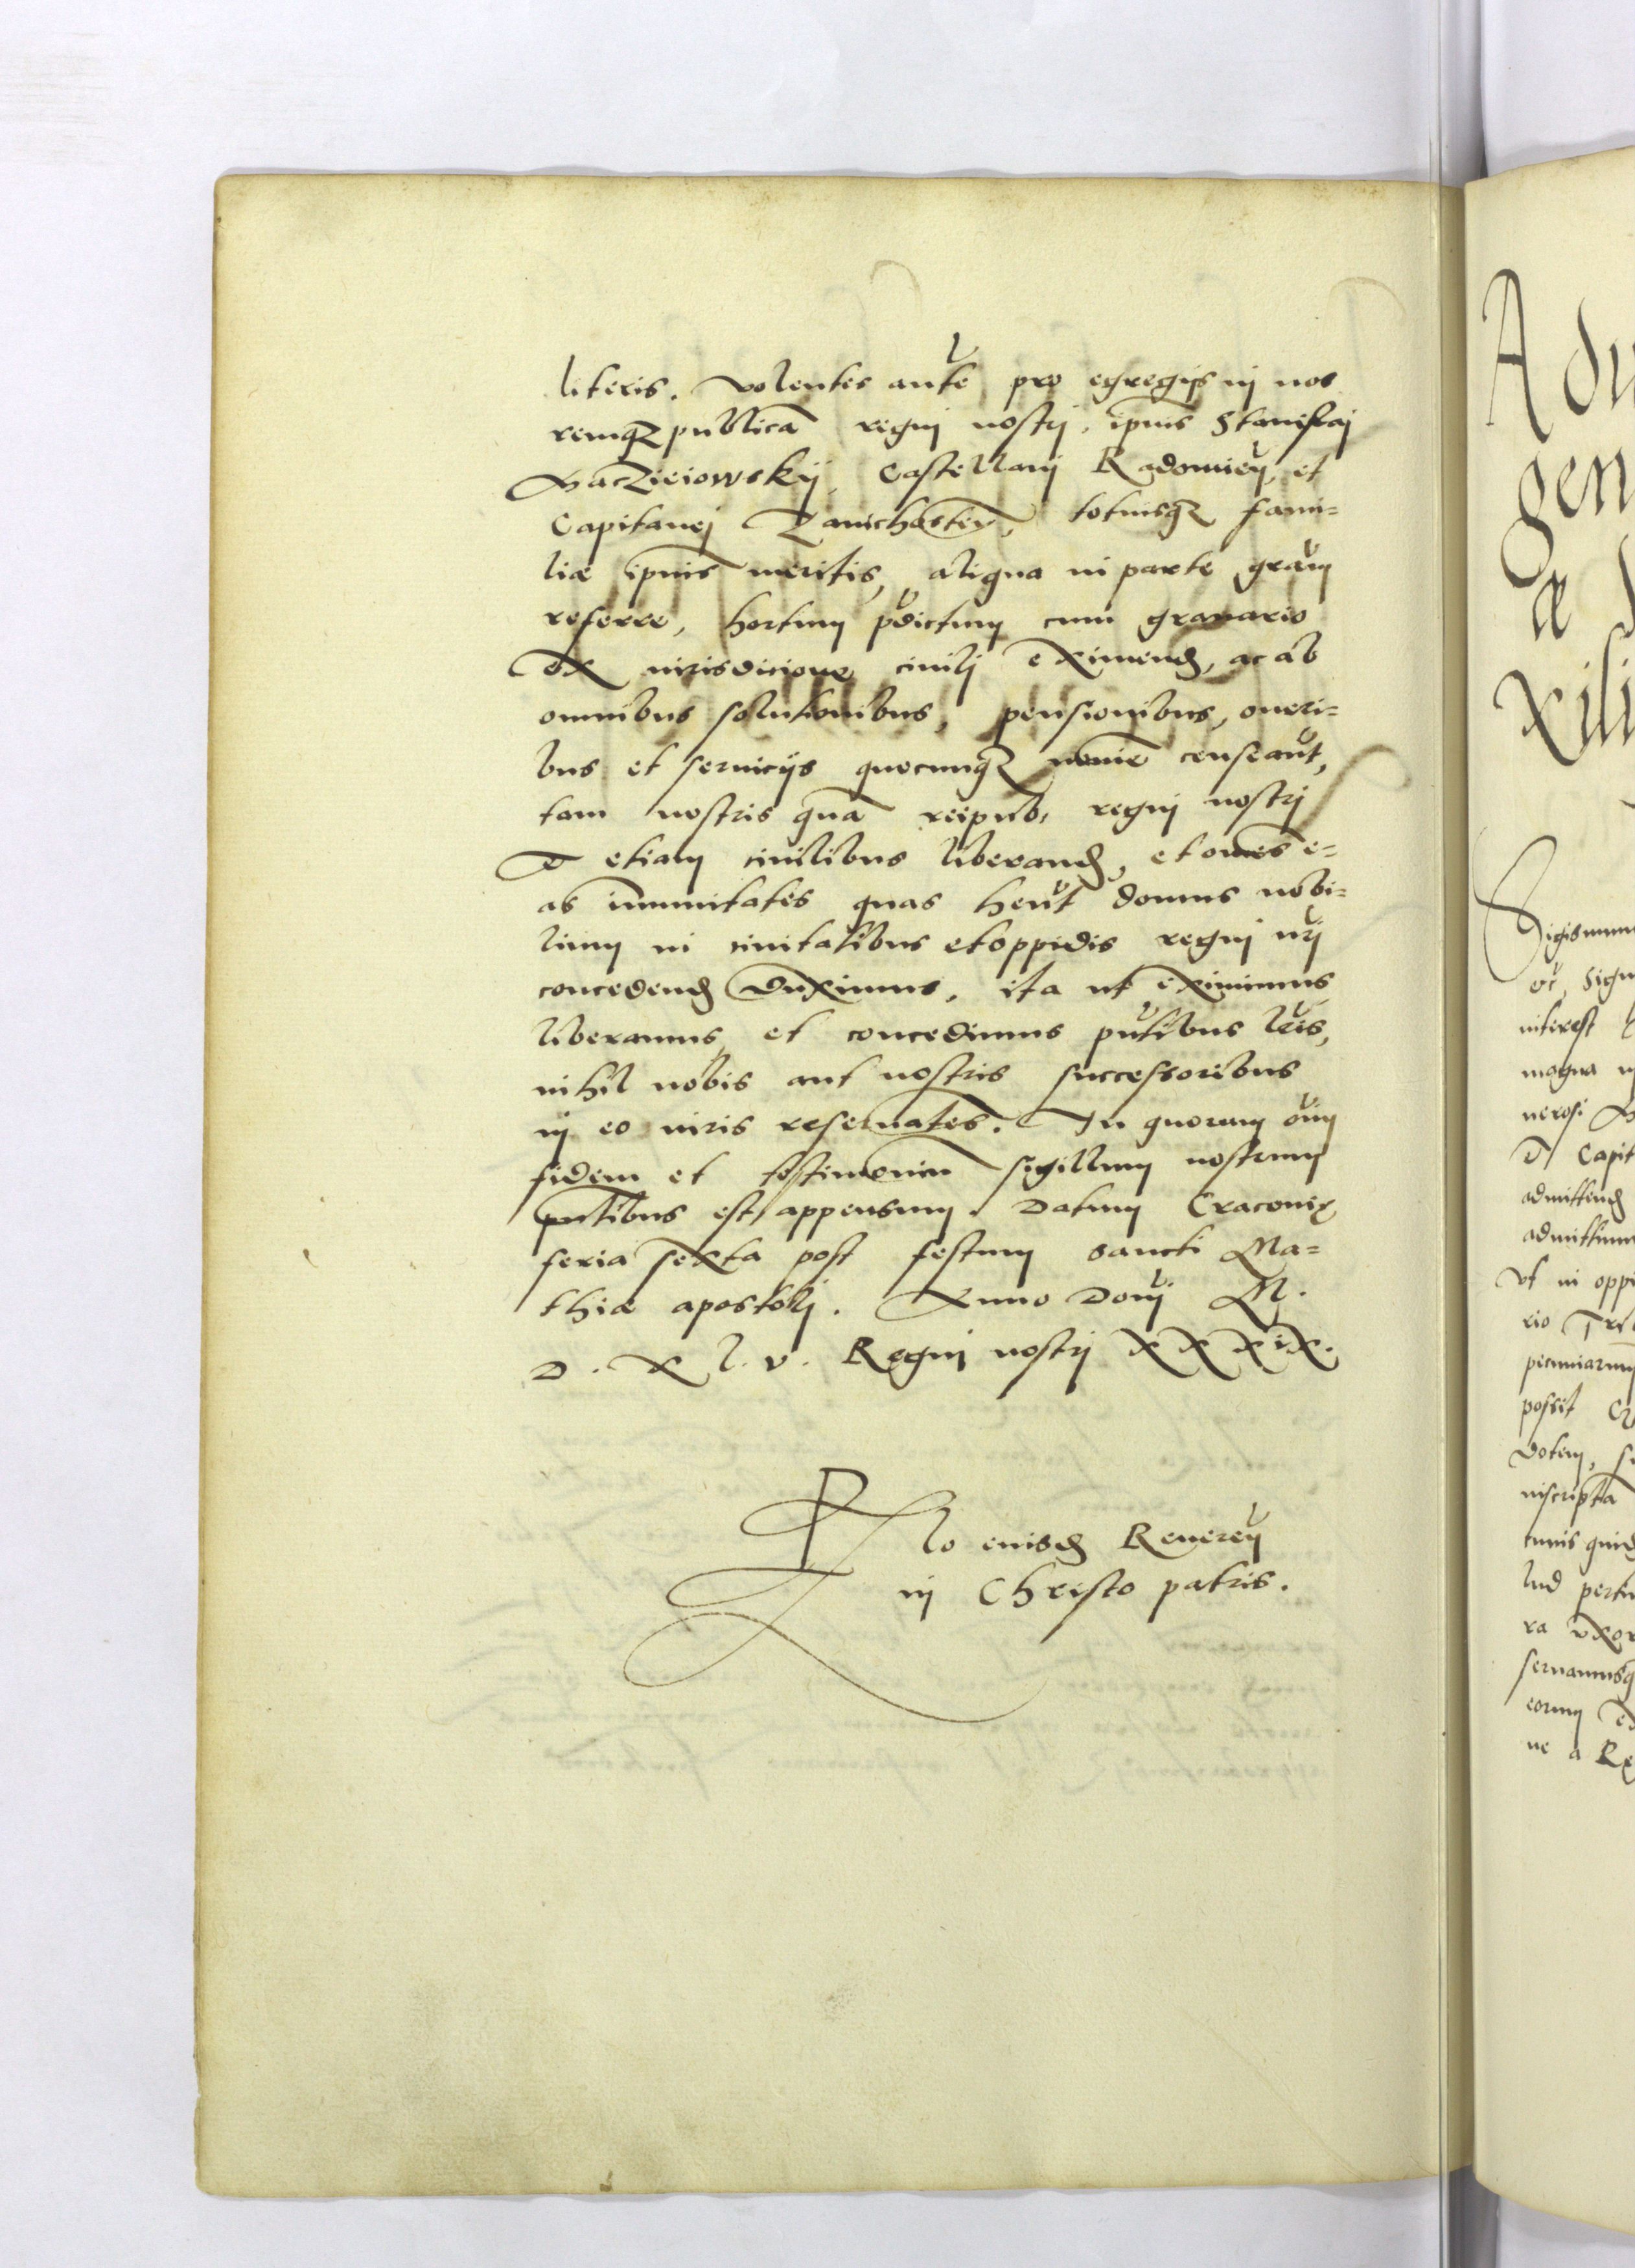 literis. Volentes aute pro egregijs in nos
remqz publica regni nostri, ipius Stanislai
Maczieiowskij, Castellani Radomien, et
Capitanej Zawichosten, totiusqz fami=
liæ ipius meritis, aliqua in parte gram
referre, hortum pdictum cum granario
Ex iurisdicione ciuilj eximend, ac ab
omnibus solutionibus, pensionibus, oneri=
bus et seruicijs quocunqz nomie censeant,
tam nostris qua reipub. regni nostrj
etiam ciuilibus liberand, et omes e=
as immunitates quas hent domus nobi=
lium in ciuitatibus et oppidis regni nrj
concedend duximus, ita ut eximimus
liberamus et concedimus pntibus lris,
nihil nobis aut nostris successoribus
in eo iuris reseruates. In quorum oim
fidem et testimoniu sigillum nostrum
pntibus est appensum. Datum Cracouię
feria sexta post festum sancti Ma=
thiæ apostolj. Anno Domj M.
D. X l. v. Regni nostrj XXXIX.
Rlo eiusd Reueren
in Christo patris.
A
gen
æ
xili
Sigismun
etc. Sign
interest
magna
nerosi
Capit
admittend
admittimu
Vt in oppi
rio
pecuniarum
possit
dotem,
inscripta
cuius
lud
ra uxor
seruamusq
eorum
ne a Re